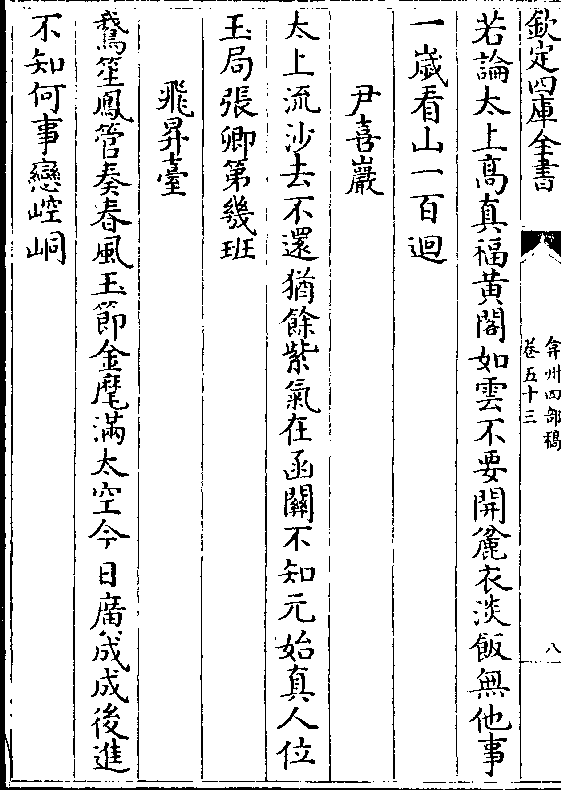 欽定四庫全書
弇州四部稿
卷五十三
八
若論太上髙真福黄閣如雲不要開麄衣淡飯無他事
一歳看山一百迴
尹喜巖
太上流沙去不還猶餘紫氣在函關不知元始真人位
玉局張卿第幾班
飛昇臺
鵞笙鳳管奏春風玉節金麾滿太空今日廣成成後進
不知何事戀崆峒